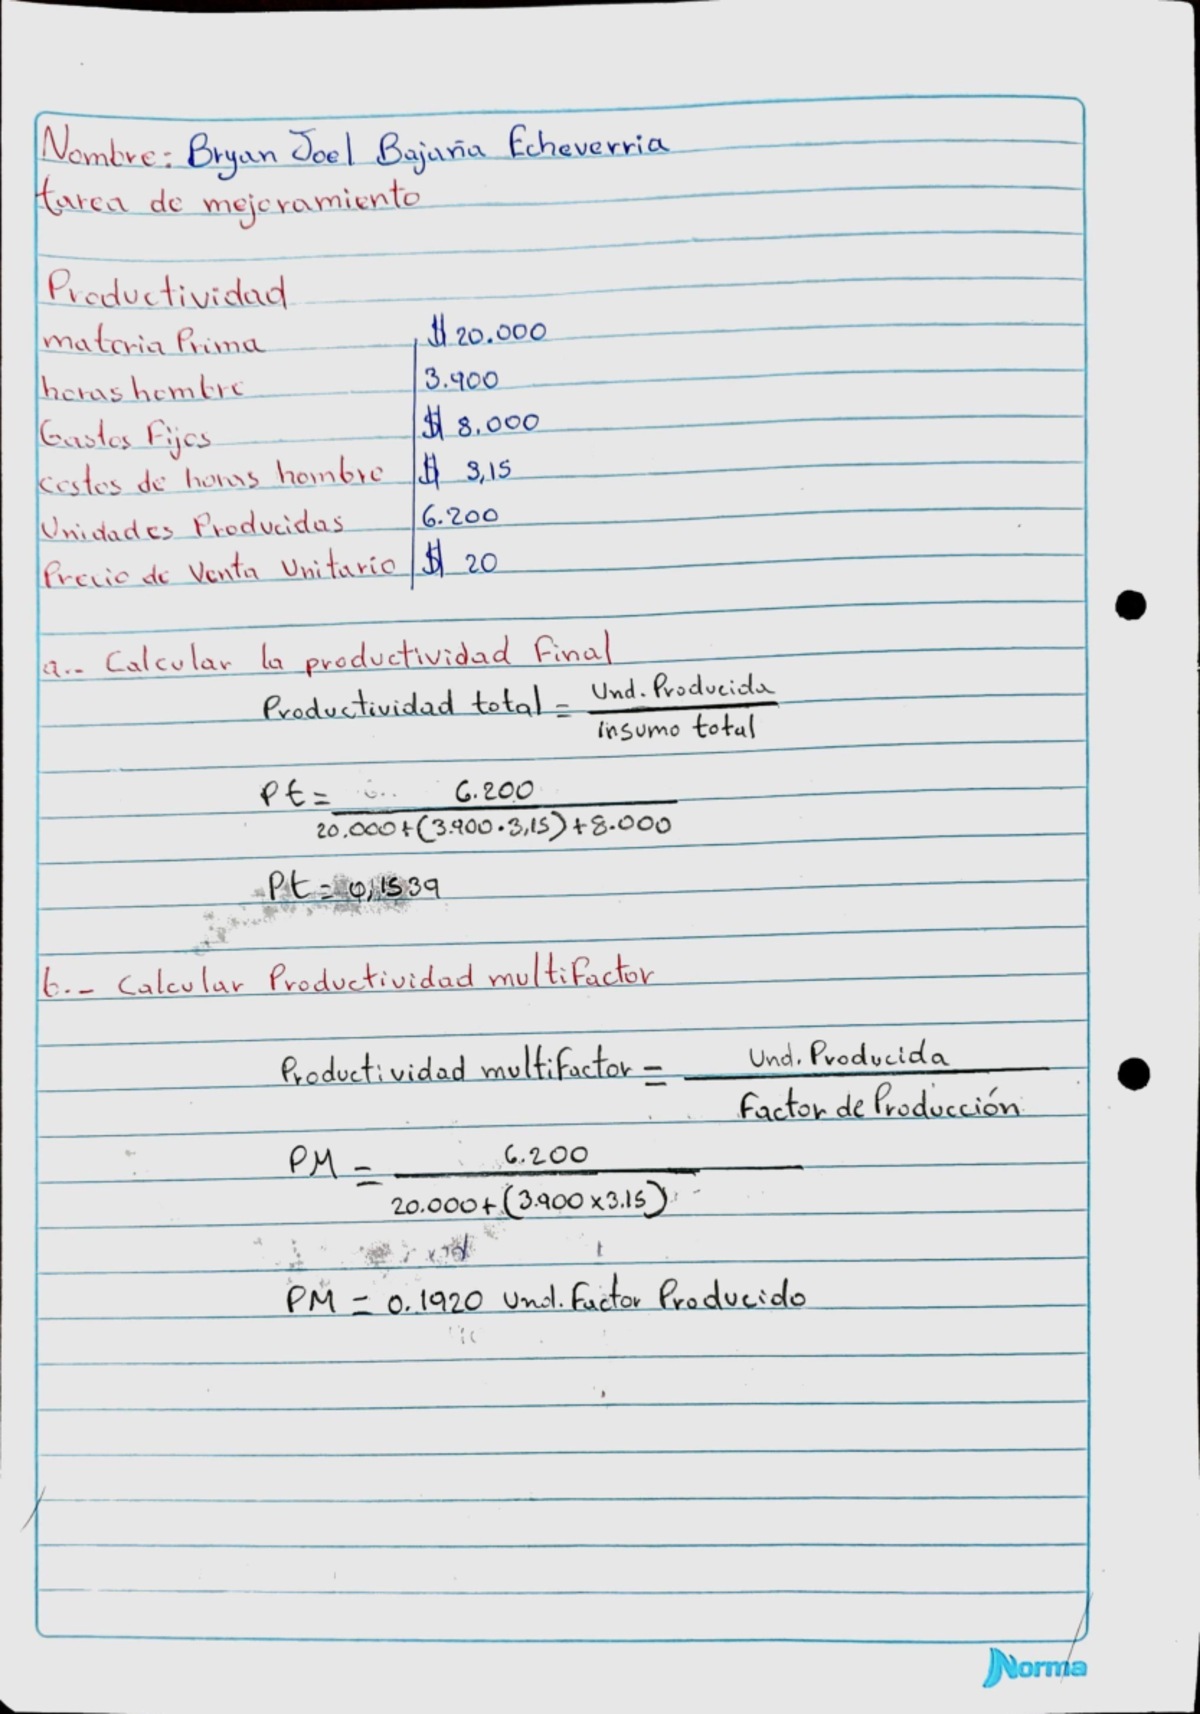 Nombre: Bryan Joel Bajaña Echeverria
tarea de mejoramiento
Productividad
materia Prima $ 20.000
horas hombre 3.900
Gastos Fijos $ 8.000
costos de horas hombre $ 3,15
Unidades Producidas 6.200
Precio de Venta Unitario $ 20
a.- Calcular la productividad Final
Productividad total = Und. Producida / insumo total
Pt = 6.200 / 20.000+(3.900·3,15)+8.000
Pt = 0,1539
b.- Calcular Productividad multifactor
Productividad multifactor = Und. Producida / Factor de Producción
PM = 6.200 / 20.000+(3.900x3.15)
PM = 0.1920 Und. Factor Producido
Norma